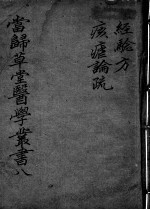 經驗方
痎瘧論疏
當歸草堂醫學叢書八